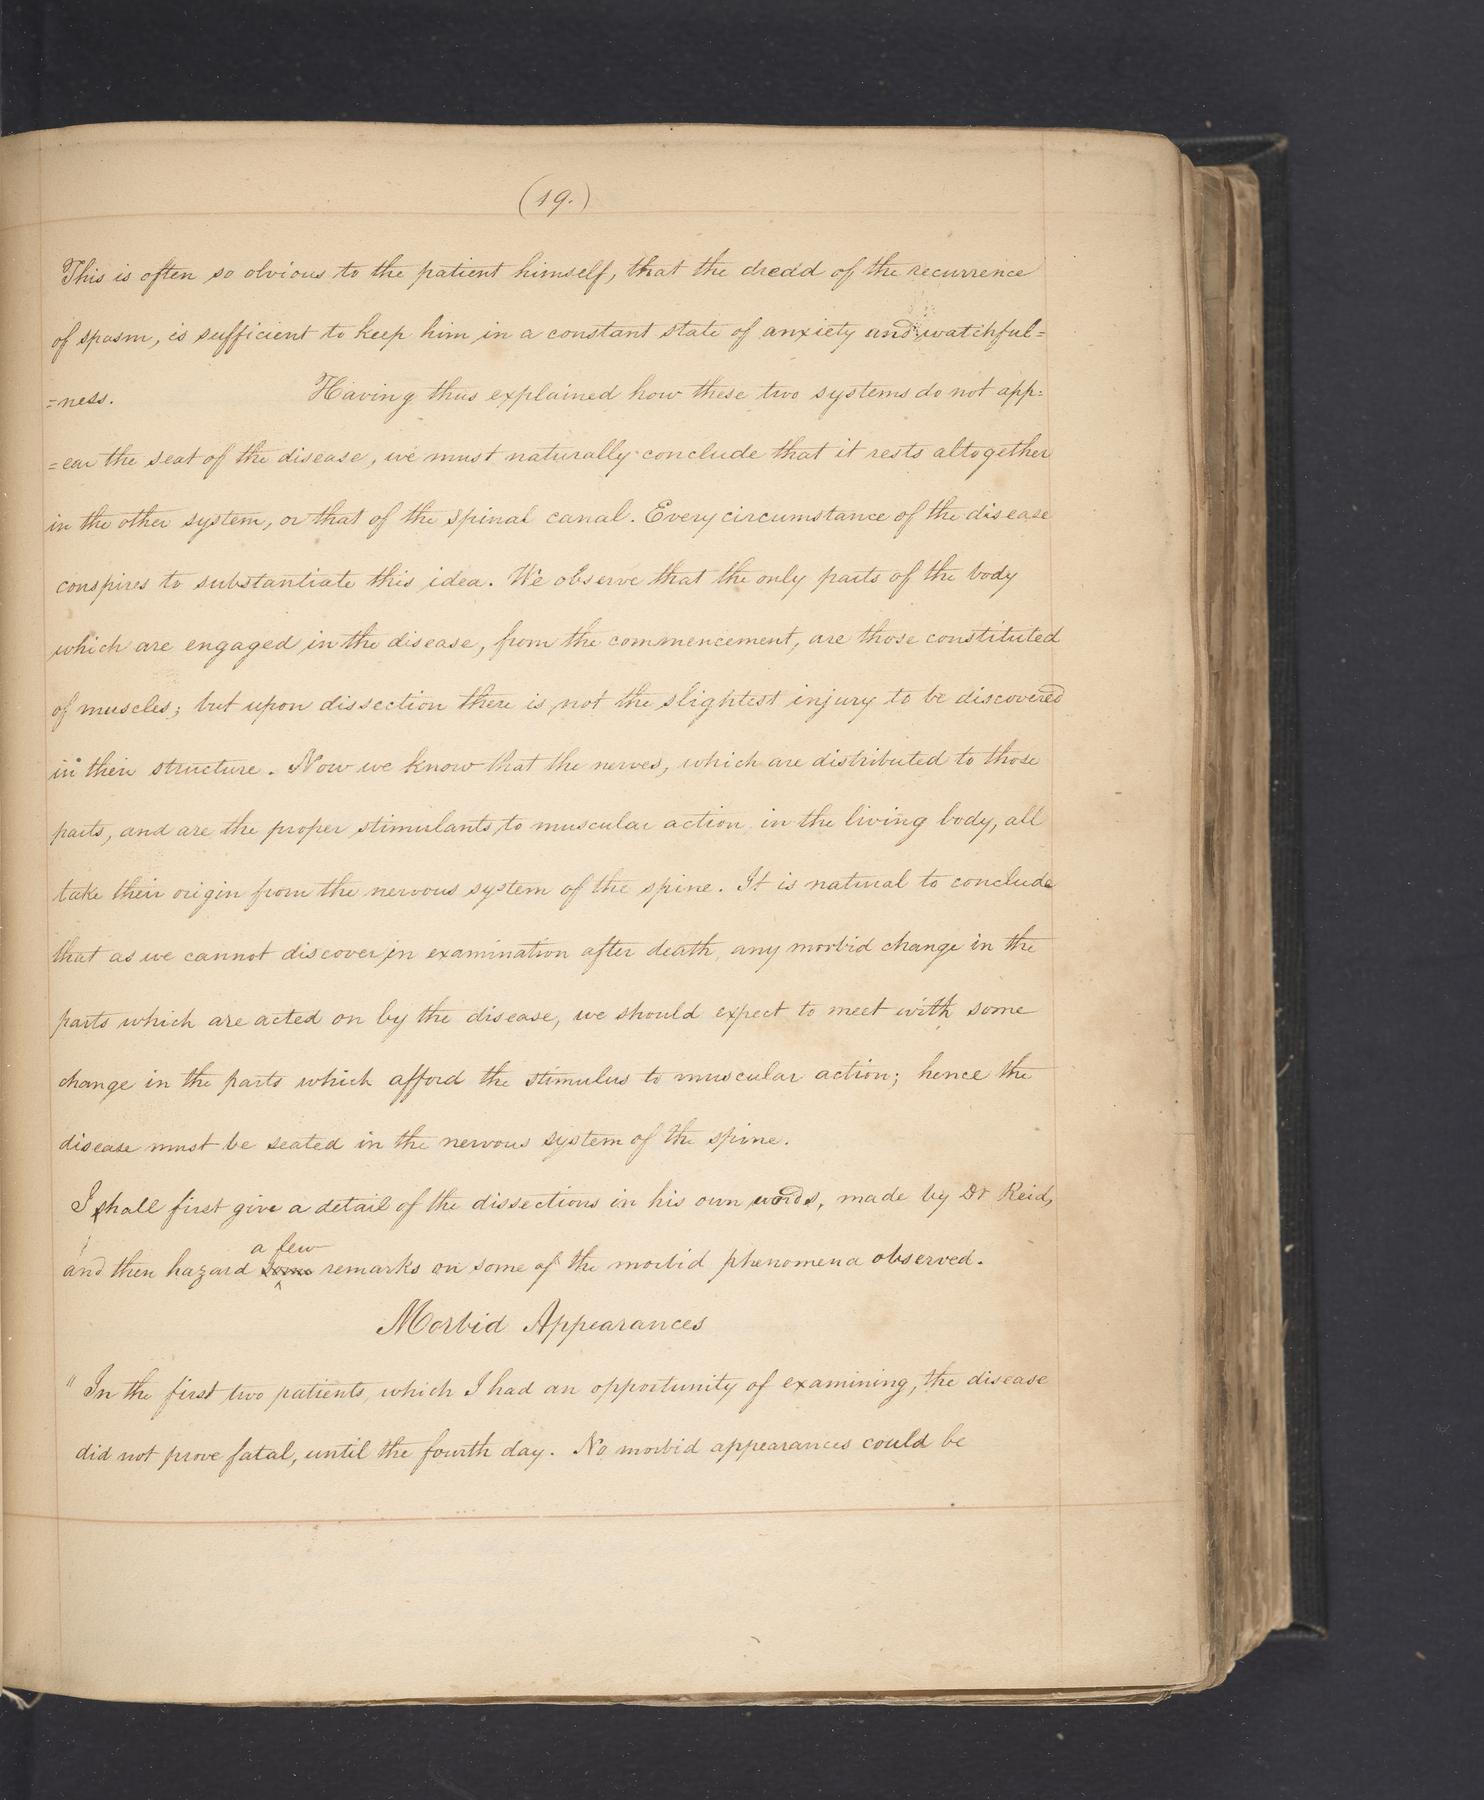 (19.)
This is often so obvious to the patient himself, that the dredd of the recurrence
of spasm, is sufficient to keep him in a constant state of anxiety and watchful=
=ness. Having thus explained how these two systems do not app=
=ear the seat of the disease, we must naturally conclude that it rests altogether
in the other system, or that of the spinal canal. Every circumstance of the disease
conspires to substantiate this idea. We observe that the only parts of the body
which are engaged in the disease, from the commencement, are those constituted
of muscles; but upon dissection there is not the slightest injury to be discovered
in their structure. Now we know that the nerves, which are distributed to those
parts, and are the proper stimulants to muscular action in the living body, all
take their origin from the nervous system of the spine. It is natural to conclude
that as we cannot discover in examination after death, any morbid change in the
parts which are acted on by the disease, we should expect to meet with some
change in the parts which afford the stimulus to muscular action; hence the
disease must be seated in the nervous system of the spine.
I shall first give a detail of the dissections in his own words, made by Dr Reid,
a few
and then hazard some remarks on some of the morbid phenomena observed.
Morbid Appearances
"In the first two patients, which I had an opportunity of examining, the disease
did not prove fatal, until the fourth day. No morbid appearances could be